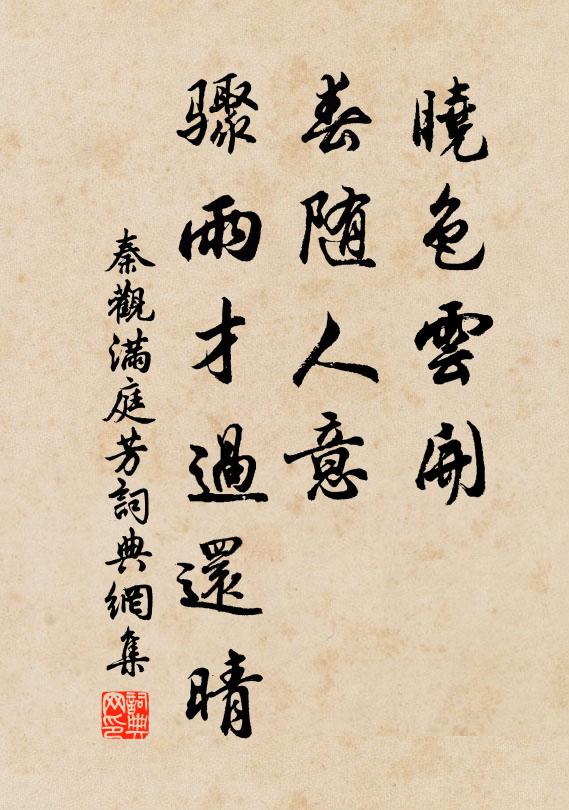 曉色雲開
春随人意
驟雨才過還晴
秦觀滿庭芳詞典網集
詞典网印